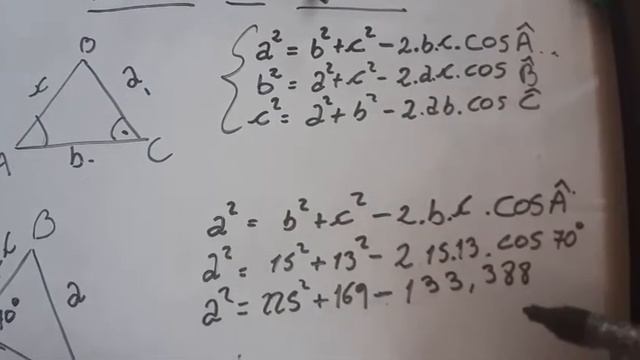 B
c
a
A
b.
C
a² = b² + c² - 2.b.c. cos Â..
b² = a² + c² - 2.a.c. cos B̂
c² = a² + b² - 2.ab. cos Ĉ
a² = b² + c² - 2.b.c. cos Â
a² = 15² + 13² - 2 15.13. cos 70°
a² = 225² + 169 - 133,388
B
c
a
0°